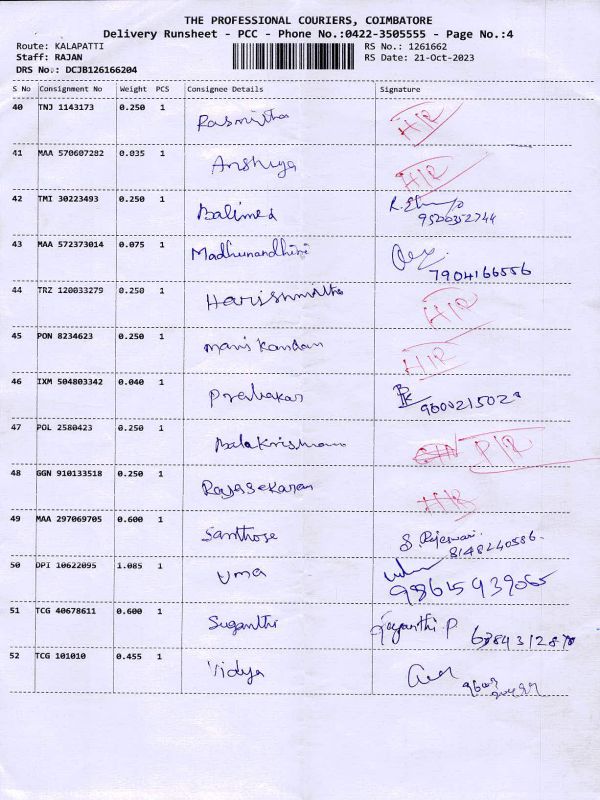 THE PROFESSIONAL COURIERS, COIMBATORE
Delivery Runsheet - PCC - Phone No.:0422-3505555 - Page No.:4
Route: KALAPATTI RS No.: 1261662
Staff: RAJAN RS Date: 21-Oct-2023
DRS No.: DCJB126166204
S No Consignment No Weight PCS Consignee Details Signature
40 TNJ 1143173 0.250 1 Rasmitha H/R
41 MAA 570607282 0.035 1 Anshiya H/R
42 TMI 30223493 0.250 1 Balimed
9500352744
43 MAA 572373014 0.075 1 Madhunandhini
7904166556
44 TRZ 120033279 0.250 1 Harishmitha H/R
45 PON 8234623 0.250 1 Mani Kandan H/R
46 IXM 504803342 0.040 1 Prabakar
47 POL 2580423 0.250 1 Balakrishnan P/R
48 GGN 910133518 0.250 1 Rajasekaran H/R
49 MAA 297069705 0.600 1 Santhose S. Rajeswari
8148240586.
50 DPI 10622095 1.085 1 Uma
51 TCG 40678611 0.600 1 Suganthi Jayanthi P
52 TCG 101010 0.455 1 Vidya